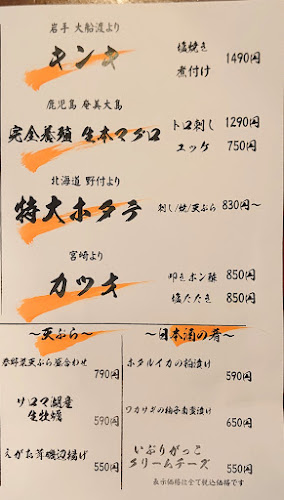 岩手 大船渡より
キンキ
塩焼き 1490円
煮付け
鹿児島 奄美大島
完全養殖 生本マグロ
トロ刺し 1290円
ユッケ 750円
北海道 野付より
特大ホタテ
刺し/焼/天ぷら 830円~
宮崎より
カツオ
叩きポン酢 850円
塩たたき 850円
~天ぷら~
春野菜天ぷら盛合わせ
790円
サロマ湖産
生牡蠣
590円
えがお茸磯辺揚げ
550円
~日本酒の肴~
ホタルイカの粕漬け
590円
ワカサギの柚子南蛮漬け
650円
いぶりがっこ
クリームチーズ
550円
表示価格は全て税込価格です